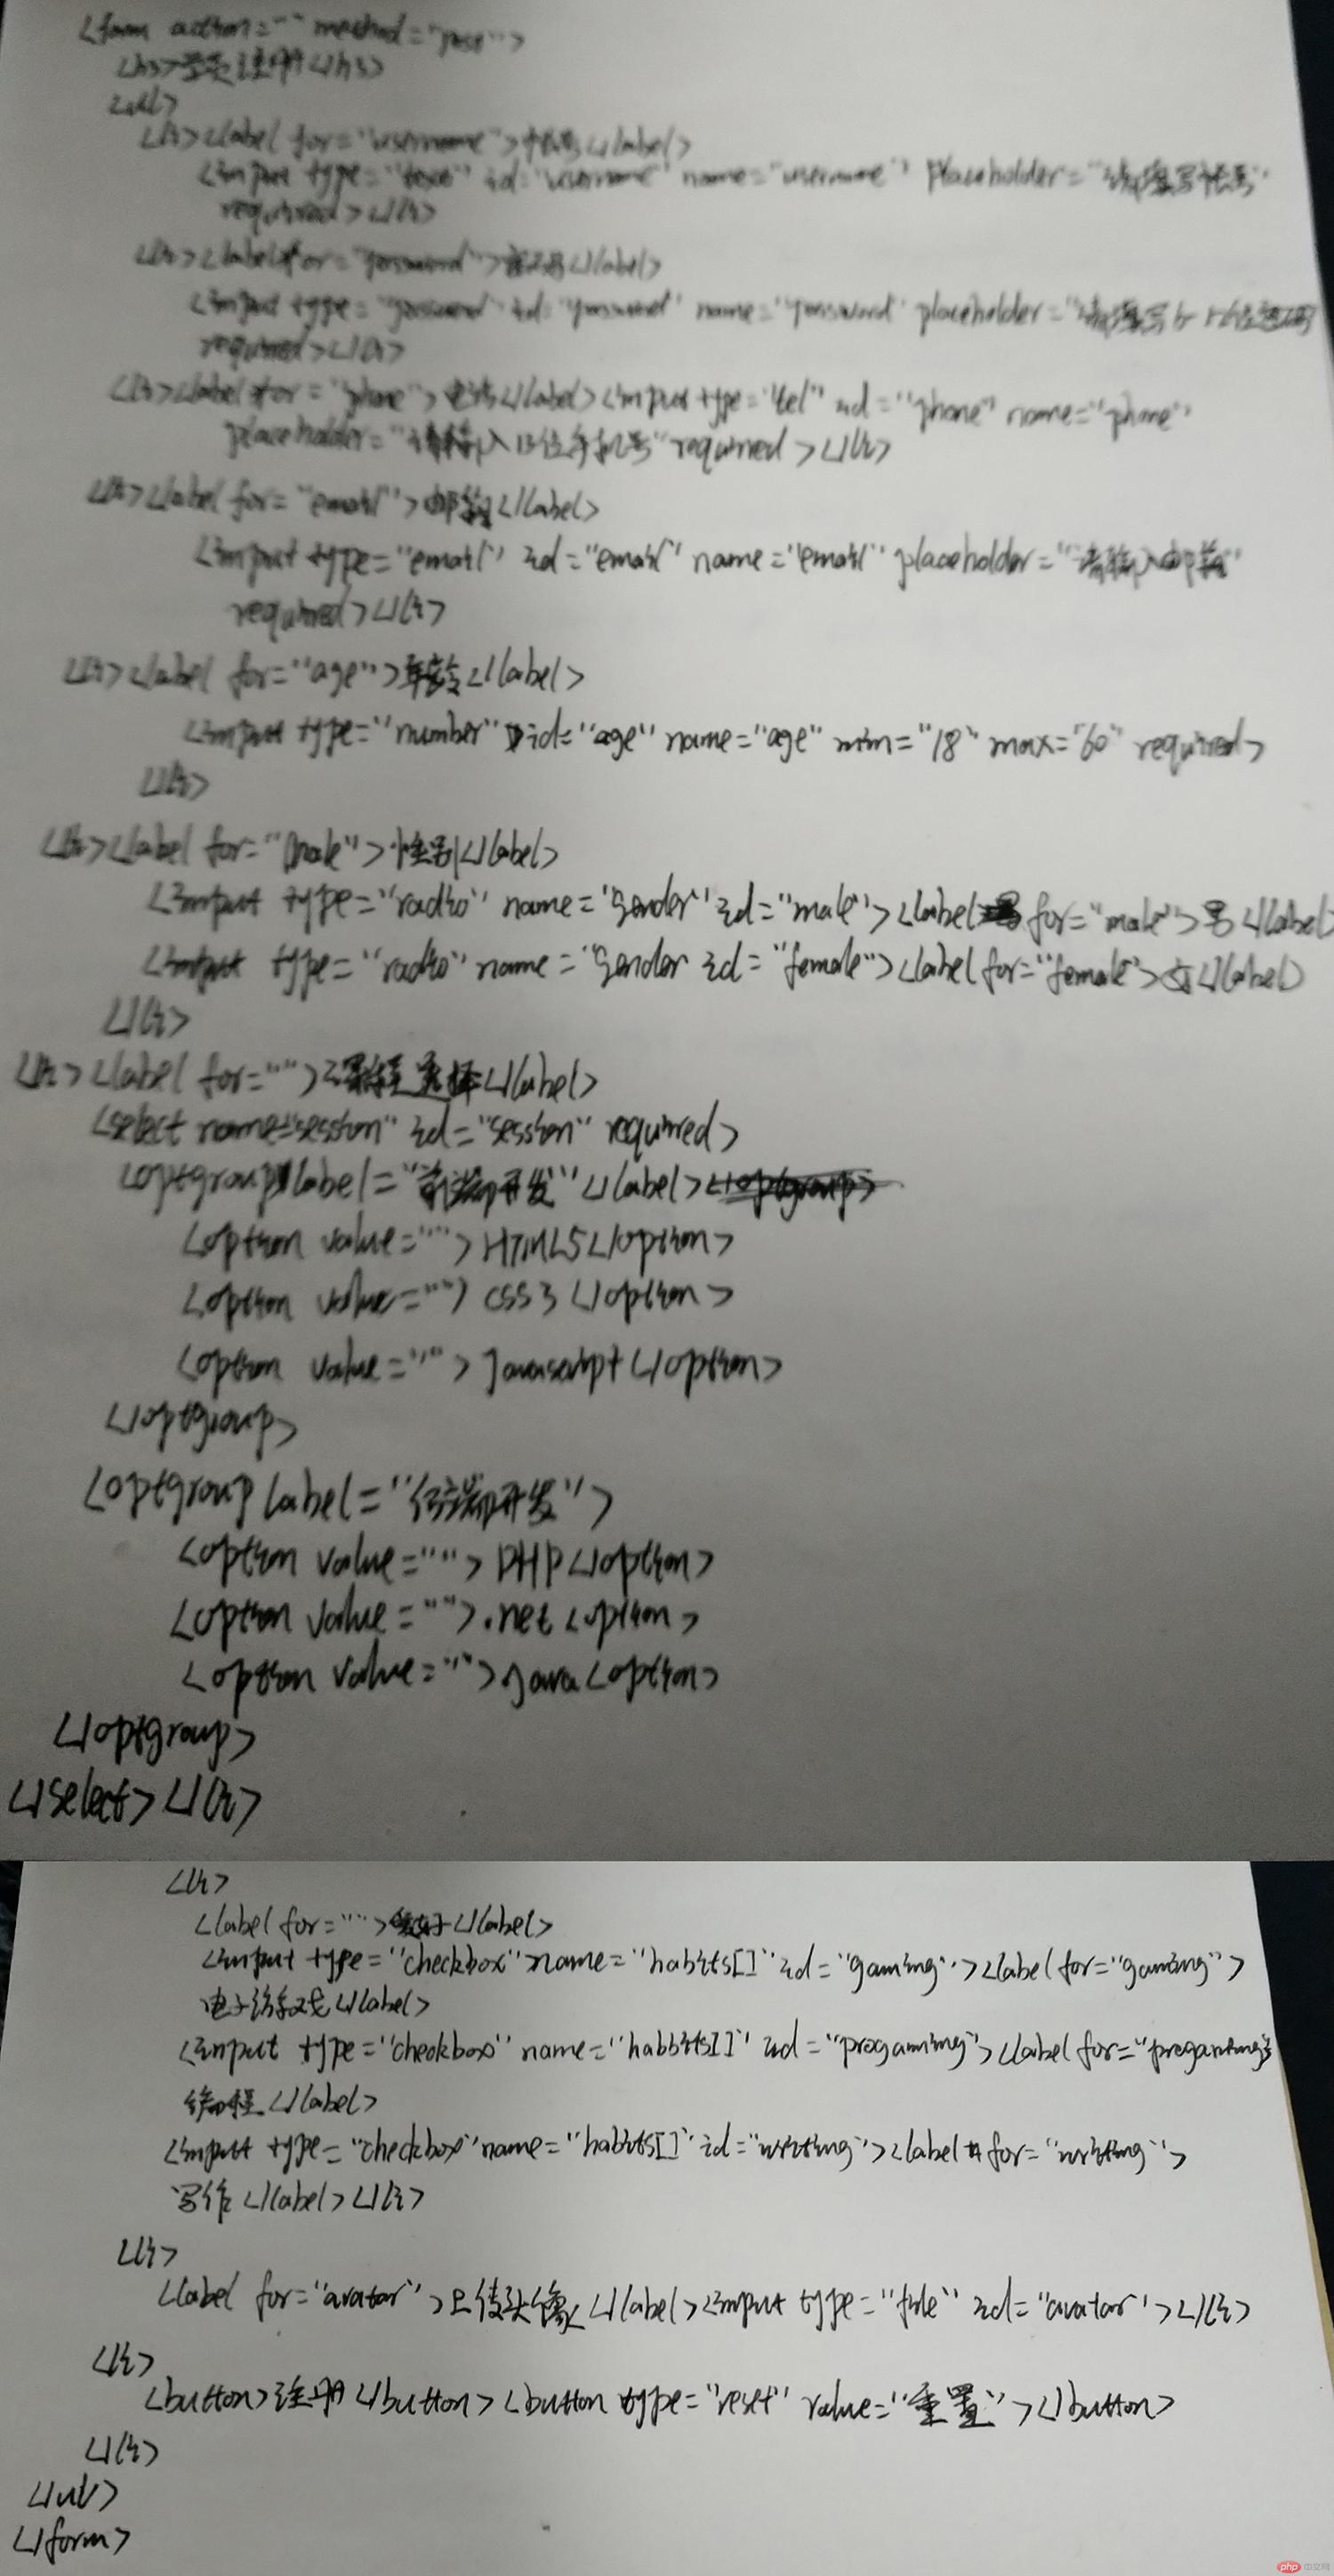 <form action="" method="post">
<h3>登录注册</h3>
<ul>
<li><label for="username">帐号</label>
<input type="text" id="username" name="username" placeholder="请填写帐号"
required></li>
<li><label for="password">密码</label>
<input type="password" id="password" name="password" placeholder="请填写
required></li>
<li><label for="phone">电话</label><input type="tel" id="phone" name="phone"
placeholder="请输入13位手机号" required></li>
<li><label for="email">邮箱</label>
<input type="email" id="email" name="email" placeholder="请输入邮箱"
required></li>
<li><label for="age">年龄</label>
<input type="number" id="age" name="age" min="18" max="60" required>
</li>
<li><label for="male">性别</label>
<input type="radio" name="gender" id="male"><label for="male">男</label>
<input type="radio" name="gender id="female"><label for="female">女</label>
</li>
<li><label for="">课程选择</label>
<select name="session" id="session" required>
<optgroup label="前端开发"</label>
<option value="">HTML5</option>
<option value="">CSS3</option>
<option value="">Javascript</option>
</optgroup>
<optgroup label="后端开发">
<option value="">PHP</option>
<option value="">.net<option>
<option value="">Java<option>
</optgroup>
</select></li>
<li>
<label for="">爱好</label>
<input type="checkbox" name="habits[]" id="gaming"><label for="gaming">
电子游戏</label>
<input type="checkbox" name="habbits[]" id="progamimg"><label for="progamimg">
编程</label>
<input type="checkbox" name="habits[]" id="writing"><label for="writing">
写作</label></li>
<li>
<label for="avatar">上传头像</label><input type="file" id="avatar"></li>
<li>
<button>注册</button><button type="reset" value="重置"></button>
</li>
</ul>
</form>
php 中文网